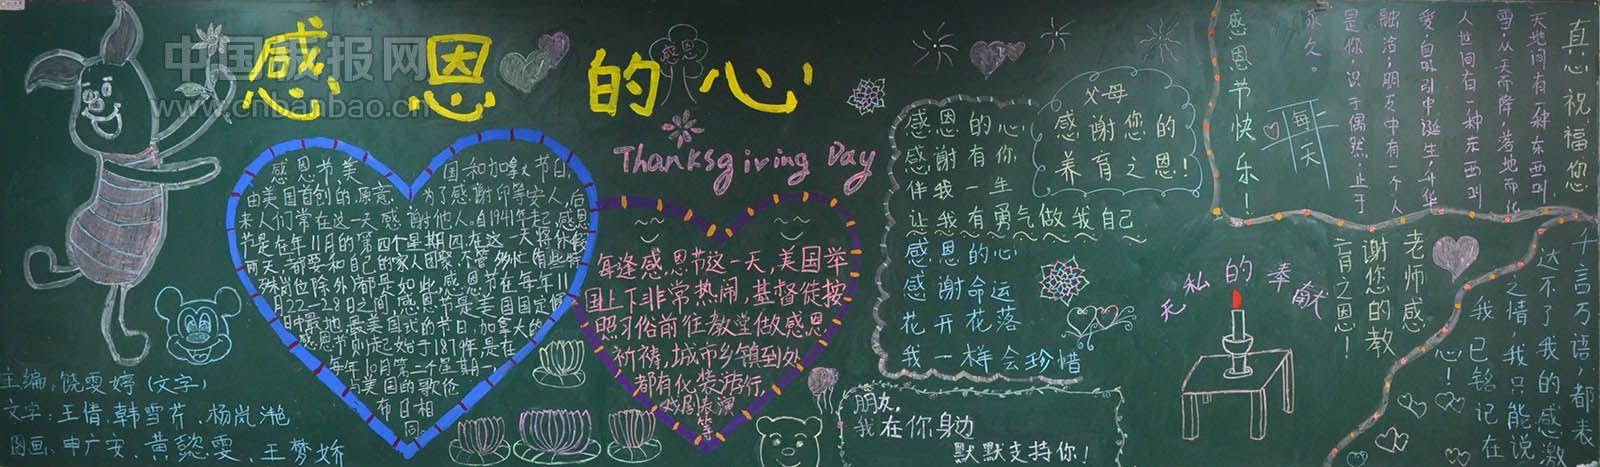 感恩的心
中国版报网
www.cnbanbao.cn
感恩
Thanksgiving Day
感恩节美国和加拿大节日,
由美国首创的原意,为了感谢印第安人,后
来人们常在这一天感谢他人。自1941年起,感恩
节是在每年11月的第四个星期四在这一天将休假
两天,都要和自己的家人团聚,不管多忙
除外都是如此,感恩节在每年11
月22-28日之间,感恩节是美国国定假
日中最地道、最美国式的节日,加拿大的
感恩节则起始于1879年是在
每年10月第二个星期一,
与美国的哥伦
布日相
同。
每逢感恩节这一天,美国举
国上下非常热闹,基督徒按
照习俗前往教堂做感恩
祈祷,城市乡镇到处
都有化装游行,
戏剧表演
等
主编:饶雯婷(文字)
文字:王倩.韩雪芹.杨岚滟
图画:申广安.黄懿雯.王梦娇
感恩的心
感谢有你
伴我一生
让我有勇气做我自己
感恩的心
感谢命运
花开花落
我一样会珍惜
父母
感谢您的
养育之恩!
朋友,
我在你身边
默默支持你!
真心祝福您
天地间有一种东西叫
雪,从天而降,落地而化
人世间有一种东西叫
爱,自吸引中诞生,升华
融洽;朋友中有一个人
是你,识于偶然,止于
永久。
每天
感恩节快乐!
无私的奉献
老师感
谢您的教
育之恩!
千言万语,都表
达不了我的感激
之情,我只能说
我已铭记在
心!